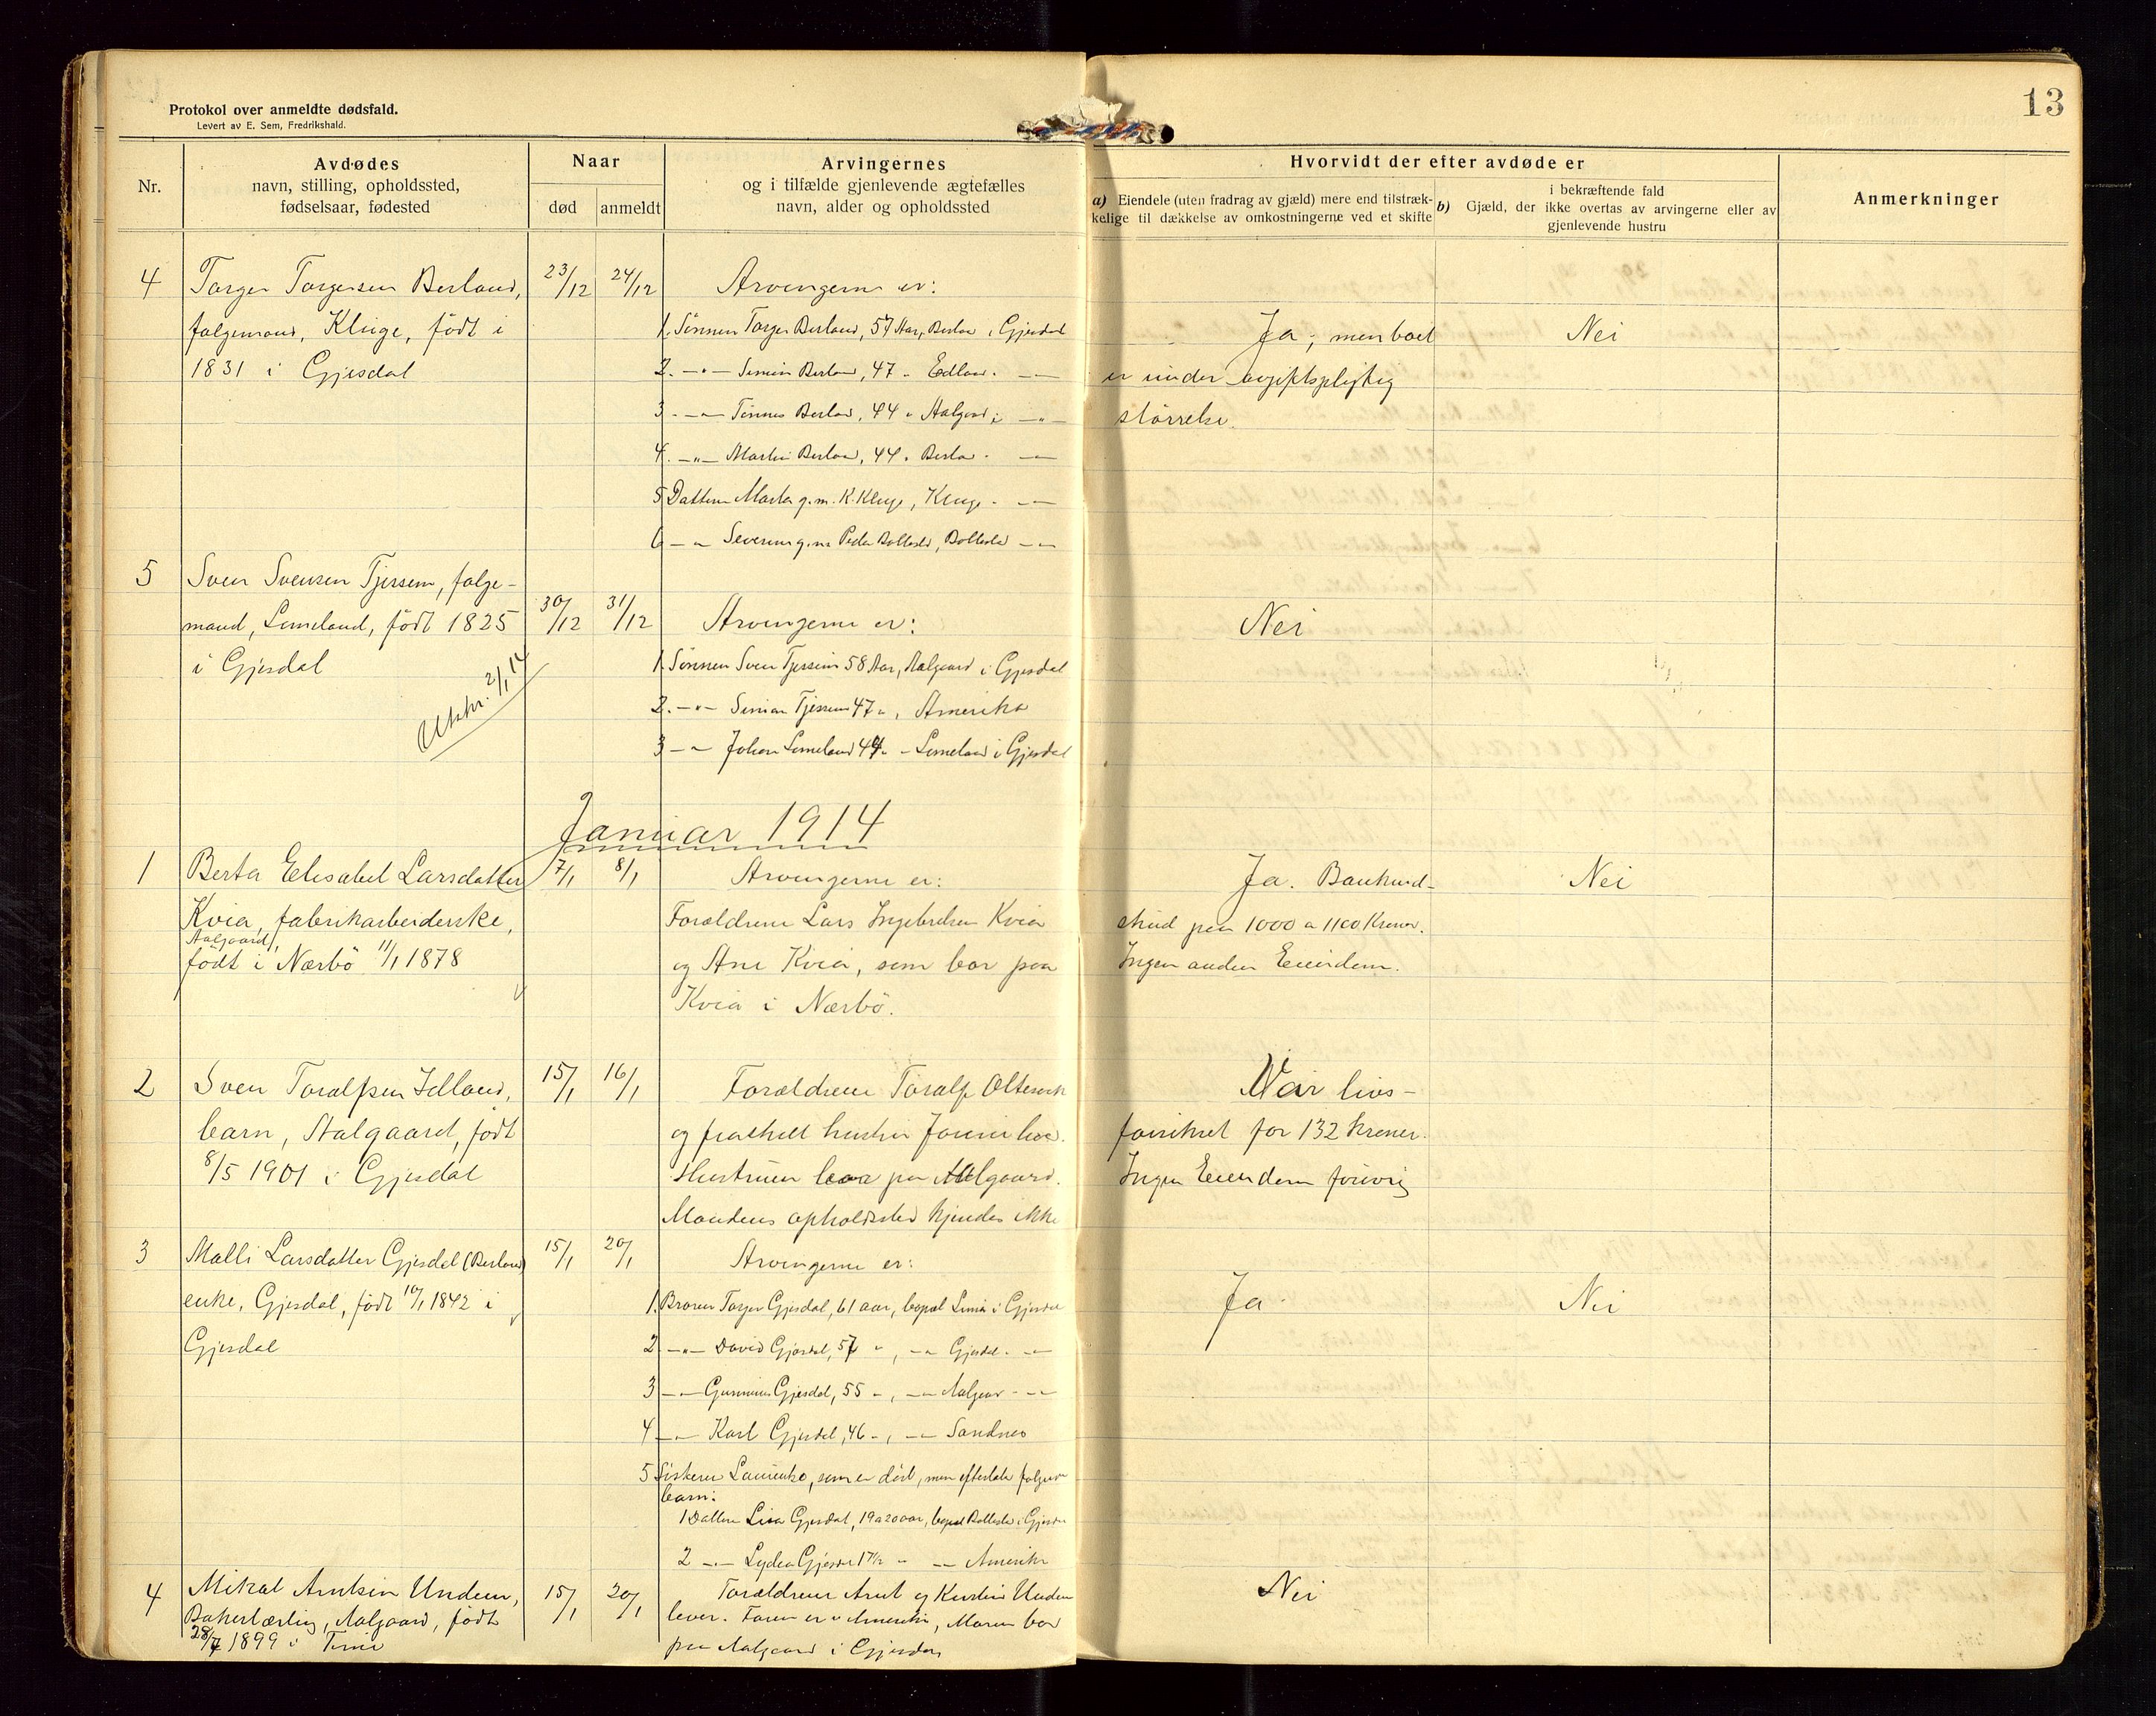 Protokol over anmeldte dødsfald.
Levert av E. Sem, Fredrikshald.
13
Nr.
Avdødes
navn, stilling, opholdssted,
fødselsaar, fødested
Naar
død
anmeldt
Arvingernes
og i tilfælde gjenlevende ægtefælles
navn, alder og opholdssted
Hvorvidt der efter avdøde er
a) Eiendele (uten fradrag av gjæld) mere end tilstræk-
kelige til dækkelse av omkostningerne ved et skifte
b) i bekræftende fald
Gjæld, der ikke overtas av arvingerne eller av
gjenlevende hustru
Anmerkninger
4
Torger Torgersen Berland,
folgemand, Kluge, födt i
1831 i Gjesdal
23/12
24/12
Arvingerne er:
1. Sönnen Torger Berland, 57 Aar, Berland i Gjesdal
2. -"- Simon Berland, 47 " Edland " -"-
3. -"- Tönnes Berland, 44 " Aalgaard i -"-
4. -"- Martin Berland, 44 " Berland " -"-
5 Datteren Marta g. m. K. Kluge, Kluge " -"-
6 -"- Severine g. m. Peder Bollestd, Bollestd -"-
Ja; men boet
er under avgiftspligtig
störrelse.
Nei
5
Sven Svensen Tjessem, folge-
mand, Limeland, födt 1825
i Gjesdal
Utskr. 2/1 14
30/12
31/12
Arvingerne er:
1. Sönnen Sven Tjessem 58 Aar, Aalgaard i Gjesdal
2. -"- Simon Tjessem 47 ", Amerika
3 -"- Johan Limeland 44 " - Limeland i Gjesdal
Nei
Januar 1914
1
Berta Elisabet Larsdatter
Kvia, fabrikarbeiderske,
Aalgaard,
födt i Nærbö 11/1 1878
7/1
8/1
Arvingerne er:
Forældrene Lars Ingebretsen Kvia
og Ane Kvia, som bor paa
Kvia i Nærbö.
Ja. Bankind-
skud paa 1000 a 1100 Kroner.
Ingen anden Eiendom.
Nei
2
Sven Toralfsen Idland,
barn, Aalgaard, födt
8/5 1901 i Gjesdal
15/1
16/1
Forældrene Toralf Oltesvik
og fraskilt hustru
Hustruen bor paa Aalgaard.
Mandens opholdssted kjendes ikke
Var livs-
forsikret for 132 kroner.
Ingen Eiendom forövrig
3
Malli Larsdatter Gjesdal (Berland)
enke, Gjesdal, födt 10/1 1842 i
Gjesdal
15/1
20/1
Arvingerne er:
1. Broren Torger Gjesdal, 61 aar, bopæl Lima i Gjesdal
2 -"- David Gjesdal, 57 ", -"- Gjesdal " -"-
3 -"- Gunnuus Gjesdal, 55 ", -"- Aalgaard " -"-
4 -"- Karl Gjesdal, 46 ", -"- Sandnes
5 Sösteren, som er död, men efterlater folgende
barn:
1 Datteren Lisa Gjesdal, 19 a 20 aar, bopæl Bollestd i Gjesdal
2 -"- Lydia Gjesdal 17 1/2 " -"- Amerika
Ja.
Nei
4
Mikal Arntsen Undem,
Bakerlærling, Aalgaard, födt
28/7 1899 i Time
15/1
20/1
Forældrene Arnt og Kirstine Undem
lever. Faren er i Amerika, Moren bor
paa Aalgaard i Gjesdal
Nei